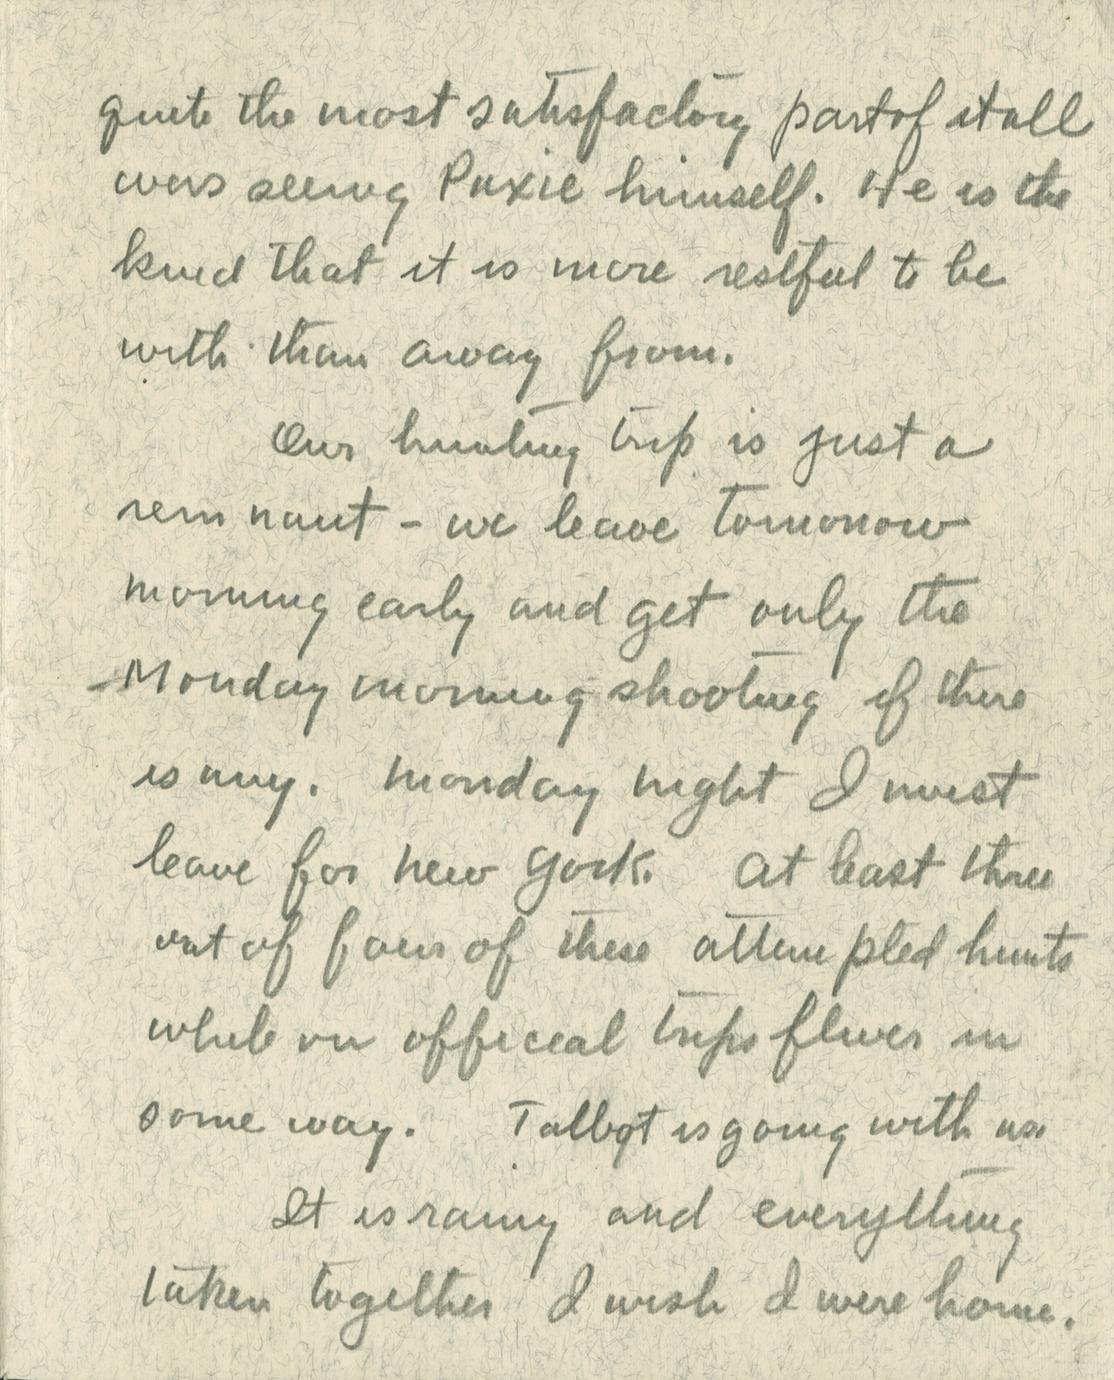 quite the most satisfactory part of it all
was seeing Paxie himself. He is the
kind that it is more restful to be
with than away from.
Our hunting trip is just a
remnant - we leave tomorrow
morning early and get only the
Monday morning shooting if there
is any. Monday night I must
leave for New York. At least three
out of four of these attempted hunts
while on official trips fliver in
some way. Talbot is going with us
It is rainy and everything
taken together I wish I were home.